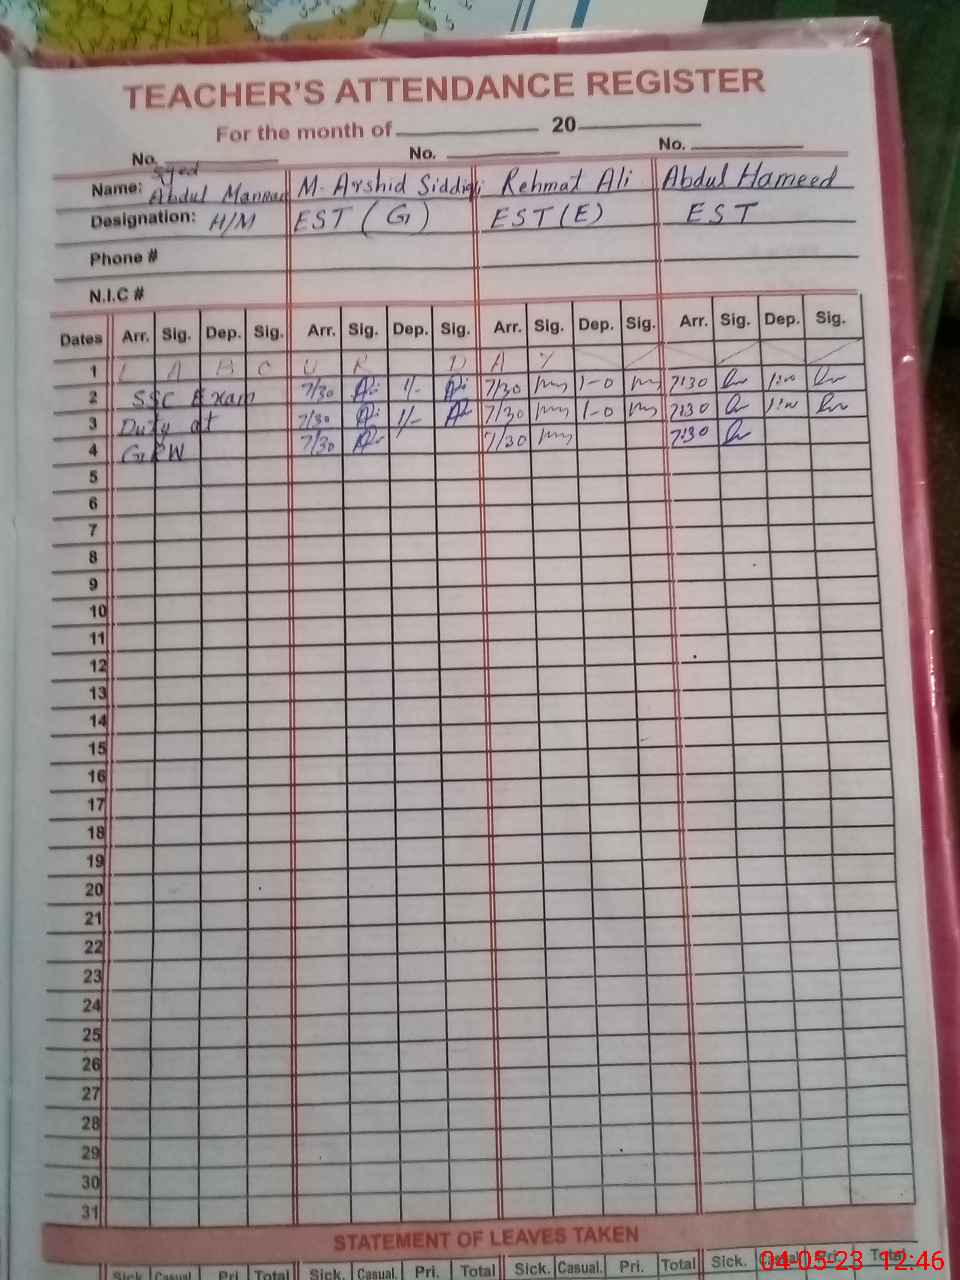 TEACHER'S ATTENDANCE REGISTER
For the month of 20
No. No. No.
Syed
Name: Abdul Mannan M. Arshid Siddiqi Rehmat Ali Abdul Hameed
Designation: H/M EST (G) EST (E) EST
Phone #
N.I.C #
Dates Arr. Sig. Dep. Sig. Arr. Sig. Dep. Sig. Arr. Sig. Dep. Sig. Arr. Sig. Dep. Sig.
1 L A B O U R D A Y
2 SSC Exam 7/30 1/- 7/30 1-0 7:30 1:00
3 Duty at 7/30 1/- 7/30 1-0 7:30 1:00
4 7/30 7/30 7:30
5
6
7
8
9
10
11
12
13
14
15
16
17
18
19
20
21
22
23
24
25
26
27
28
29
30
31
STATEMENT OF LEAVES TAKEN
Sick. Casual. Pri. Total Sick. Casual. Pri. Total Sick. Casual. Pri. Total Sick. Casual. Pri. Total
04-05-23 12:46